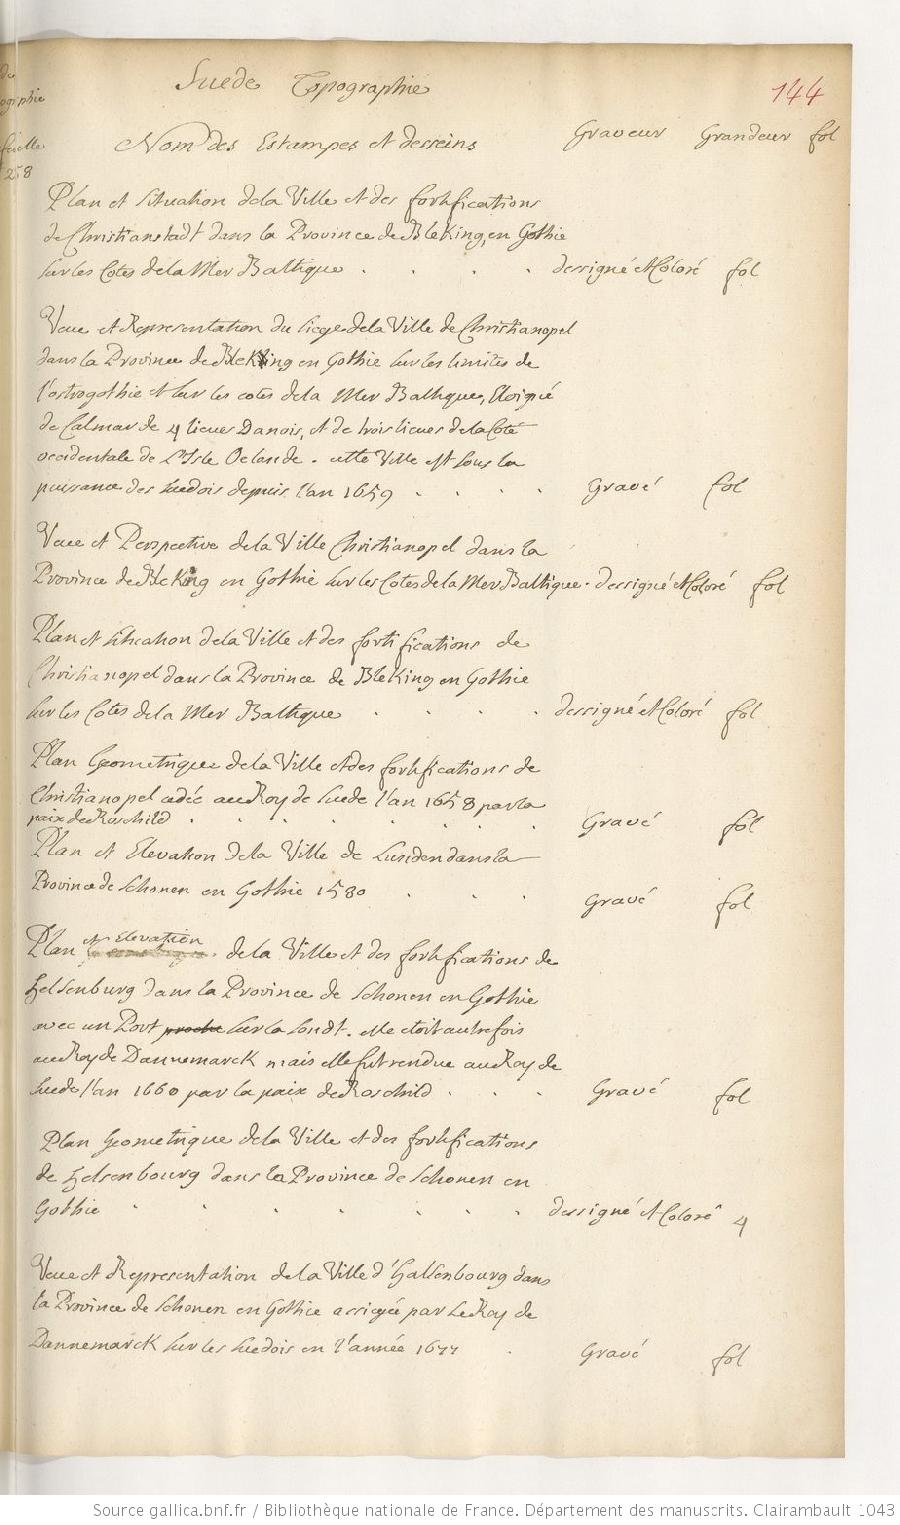 Suede Topographie
144
Nom des Estampes et desseins Graveur Grandeur fol
258
Plan et situation dela Ville et des fortifications
de Christianstadt dans la Province de Bleking, en Gothie
sur les Cotes de la Mer Baltique . . . . dessigné et Coloré fol
Veue et Representation du siege dela Ville de Christianopel
dans la Province de Bleking en Gothie sur les limites de
l'ostrogothie et sur les cotes dela Mer Baltique, Eloigné
de Calmar de 4 lieues Danois, et de trois lieues dela Coté
occidentale de L'Isle Oelande. cette Ville est sous la
puissance des suedois depuis l'an 1659 . . . . Gravé fol
Veue et Perspective dela Ville Christianopel dans la
Province de Bleking en Gothie sur les Cotes de la Mer Baltique . dessigné et Coloré fol
Plan et situation dela Ville et des fortifications de
Christianopel dans la Province de Bleking en Gothie
sur les Cotes dela Mer Baltique . . . . dessigné et Coloré fol
Plan Geometrique dela Ville et des fortifications de
Christianopel cedée au Roy de Suede l'an 1658 par la
paix de Roschild . . . . . . . . Gravé fol
Plan et Elevation dela Ville de Lunden dans la
Province de Schonen en Gothie 1580 . . . gravé fol
et Elevation
Plan de la Ville et des fortifications de
helsenburg dans la Province de Schonen en Gothie
avec un Port proche sur la Sondt. elle etoit autrefois
au Roy de Dannemarck mais elle fut rendue au Roy de
Suede l'an 1660 par la paix de Roschild . . . Gravé fol
Plan Geometrique dela Ville et des fortifications
de helsenbourg dans la Province de Schonen en
Gothie . . . . . . . dessigné et Coloré 4
Veue et Representation de la Ville d'halsenbourg dans
la Province de Schonen en Gothie assiegée par Le Roy de
Dannemarck sur les suedois en l'année 1677 . Gravé fol
Source gallica.bnf.fr / Bibliothèque nationale de France. Département des manuscrits. Clairambault 1043